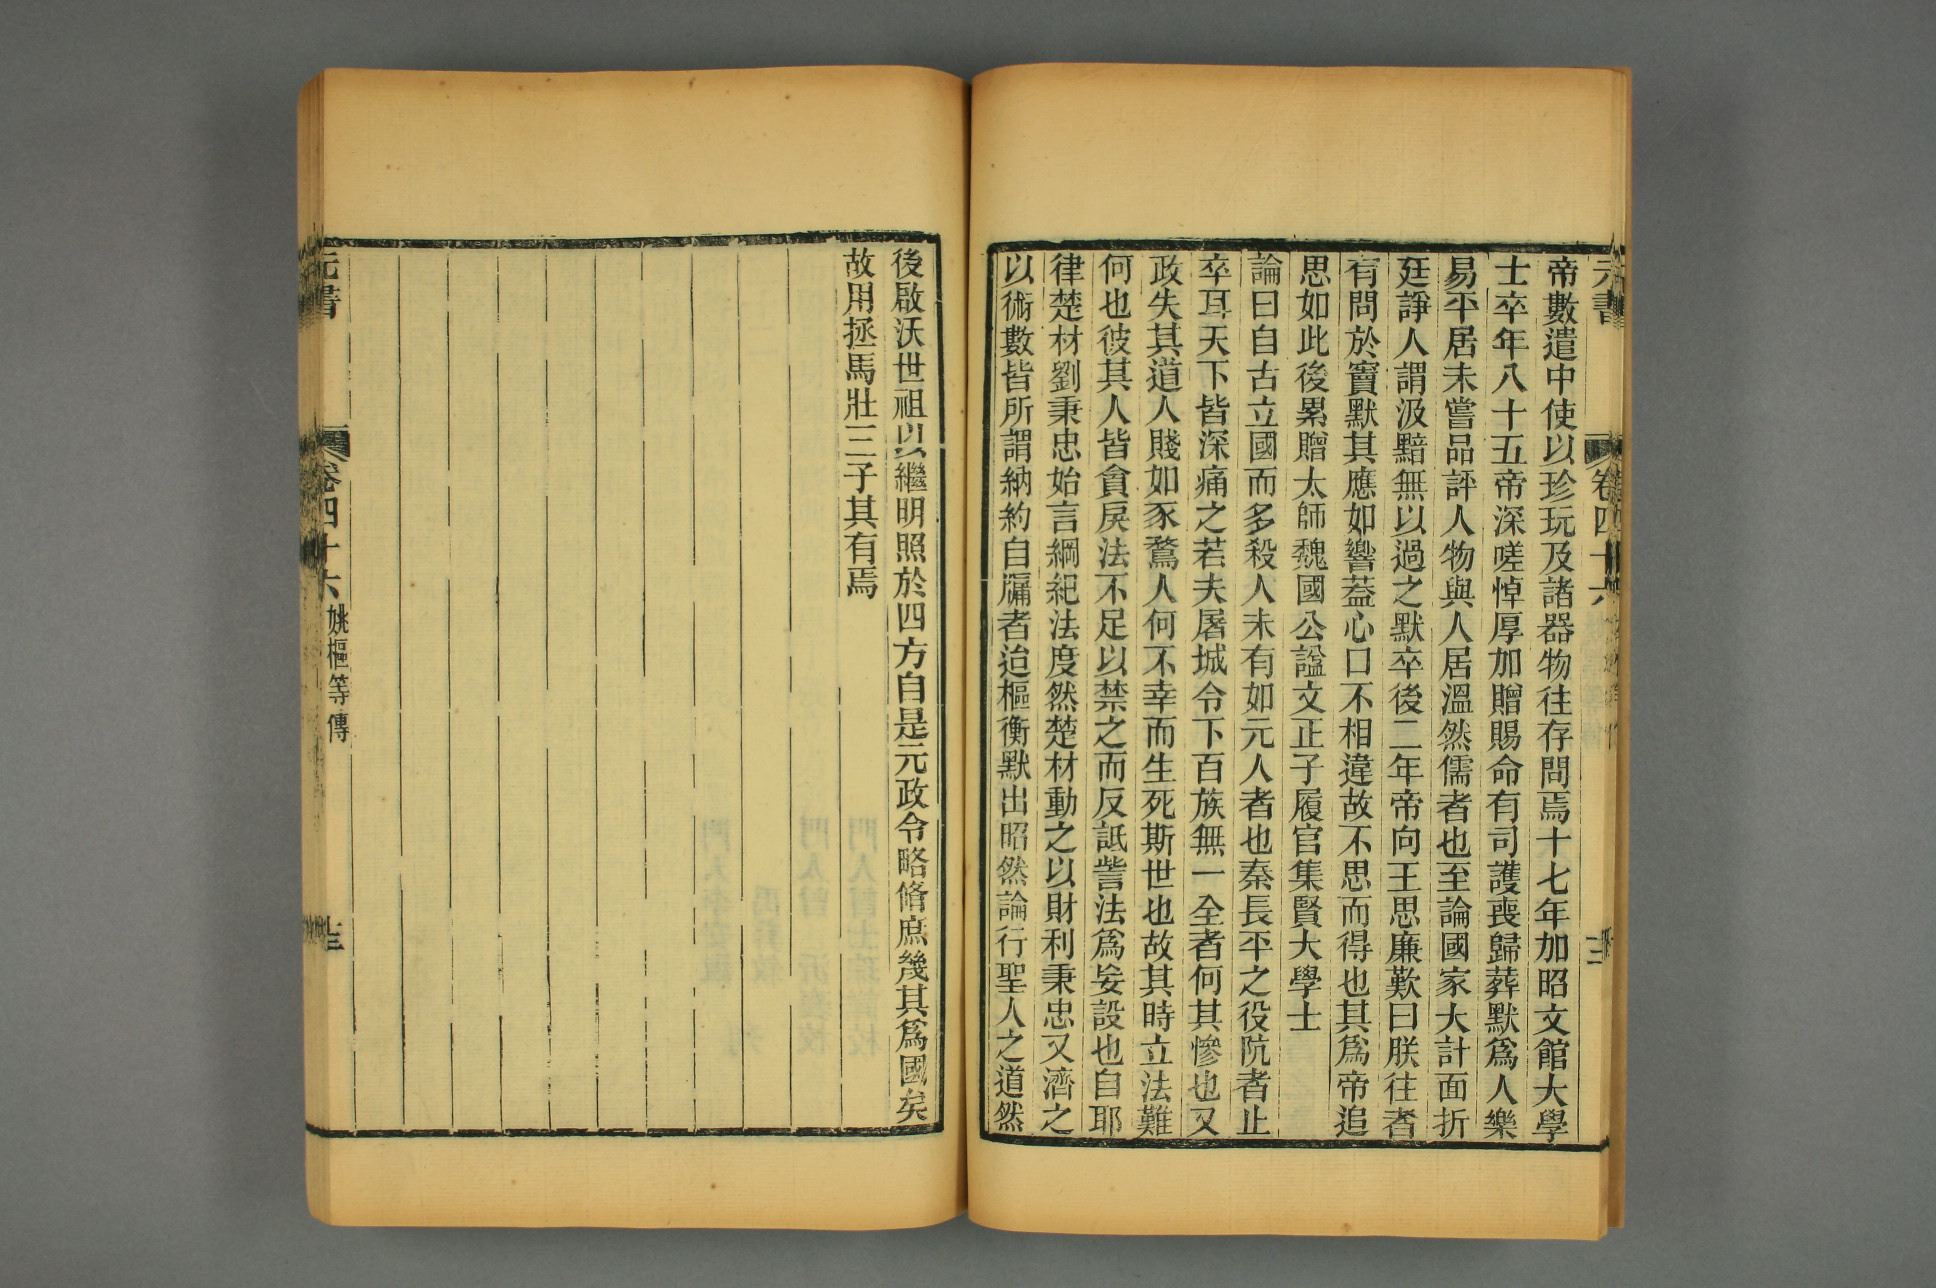 元書
卷四十六
帝數遣中使以珍玩及諸器物往存問焉十七年加昭文館大學
士卒年八十五帝深嗟悼厚加贈賜命有司護喪歸葬默爲人樂
易平居未嘗品評人物與人居溫然儒者也至論國家大計面折
廷諍人謂汲黯無以過之默卒後二年帝向王思廉歎曰朕往者
有問於竇默其應如響葢心口不相違故不思而得也其爲帝追
思如此後累贈太師魏國公諡文正子履官集賢大學士
論曰自古立國而多殺人未有如元人者也秦長平之役阬者止
卒耳天下皆深痛之若夫屠城令下百族無一全者何其慘也又
政失其道人賤如豕鶩人何不幸而生死斯世也故其時立法難
何也彼其人皆貪戾法不足以禁之而反詆訾法爲妄設也自耶
律楚材劉秉忠始言綱紀法度然楚材動之以財利秉忠又濟之
以術數皆所謂納約自牖者迨樞衡默出昭然論行聖人之道然
後啟沃世祖以繼明照於四方自是元政令略脩庶幾其爲國矣
故用拯馬壯三子其有焉
元書
卷四十六
姚樞等傳